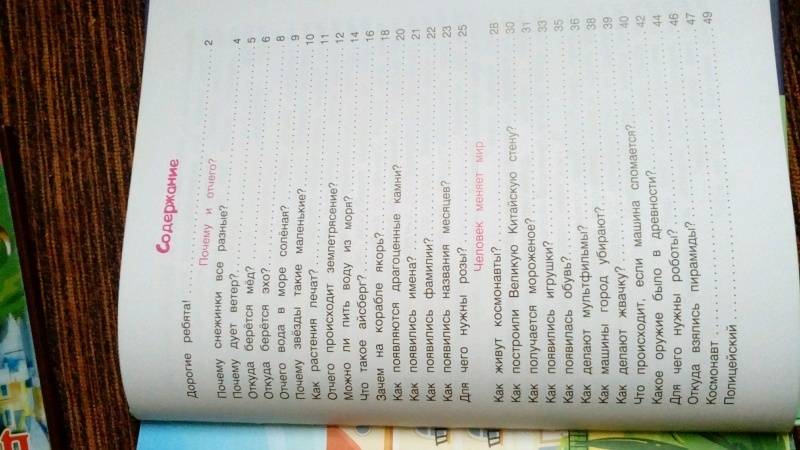 Содержание
Дорогие ребята! 2
Почему и отчего?
Почему снежинки все разные? 4
Почему дует ветер? 5
Откуда берётся мёд? 6
Откуда берётся эхо? 8
Отчего вода в море солёная? 9
Почему звёзды такие маленькие? 10
Как растения лечат? 11
Отчего происходит землетрясение? 12
Можно ли пить воду из моря? 14
Что такое айсберг? 16
Зачем на корабле якорь? 18
Как появляются драгоценные камни? 20
Как появились имена? 21
Как появились фамилии? 22
Как появились названия месяцев? 23
Для чего нужны розы? 25
Человек меняет мир
Как живут космонавты? 28
Как построили Великую Китайскую стену? 30
Как получается мороженое? 31
Как появились игрушки? 33
Как появилась обувь? 35
Как делают мультфильмы? 36
Как машины город убирают? 38
Как делают жвачку? 39
Что происходит, если машина сломается? 40
Какое оружие было в древности? 42
Для чего нужны роботы? 44
Откуда взялись пирамиды? 46
Космонавт 47
Полицейский 49